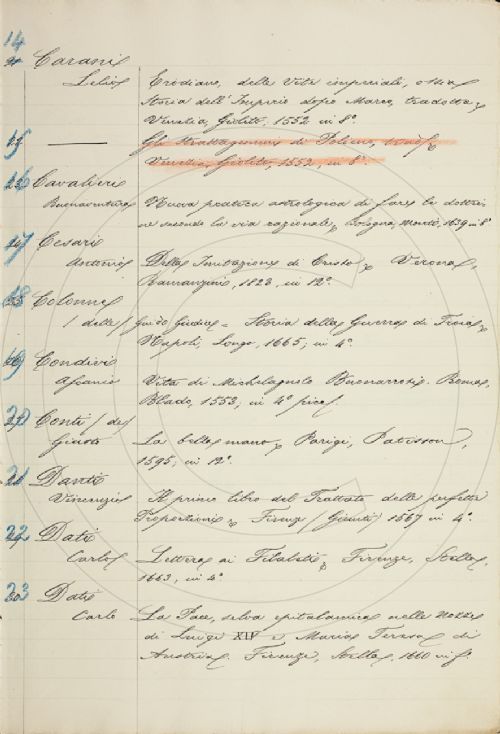 14 Carani
Lelio Erodiano, delle Vite imperiali, ossia
Storia dell'Imperio dopo Marco, tradotta
Venezia, Giolito, 1552 in 8°.
15 Gli Strattagemmi di Polieno,
Venezia, Giolito, 1552, in 8°.
16 Cavalieri
Buonaventura Nuova pratica astrologica di fare le dottrine
secondo la via razionale, Bologna, 1639 in 8°
17 Cesari
Antonio Della Imitazione di Cristo Verona,
Ramanzini, 1823, in 12°.
18 Colonne
/ delle / Guido Giudice = Storia della Guerra di Troia
Napoli, Longo, 1665; in 4°.
19 Condivi
Ascanio Vita di Michelagnolo Buonarroti. Roma,
Blado, 1553; in 4° picc.
20 Conti / de /
Giusto La bella mano Parigi, Patisson,
1595; in 12°.
21 Danti
Vincenzio Il primo libro del Trattato delle perfette
Proportioni Firenze / Giunti / 1567 in 4°.
22 Dati
Carlo Lettera ai Filaleti Firenze, Stella,
1663, in 4°
23 Dati
Carlo La Pace, selva epitalamica nelle Nozze
di Luigi XIV e Maria Teresa di
Austria. Firenze, Stella, 1660 in f°.